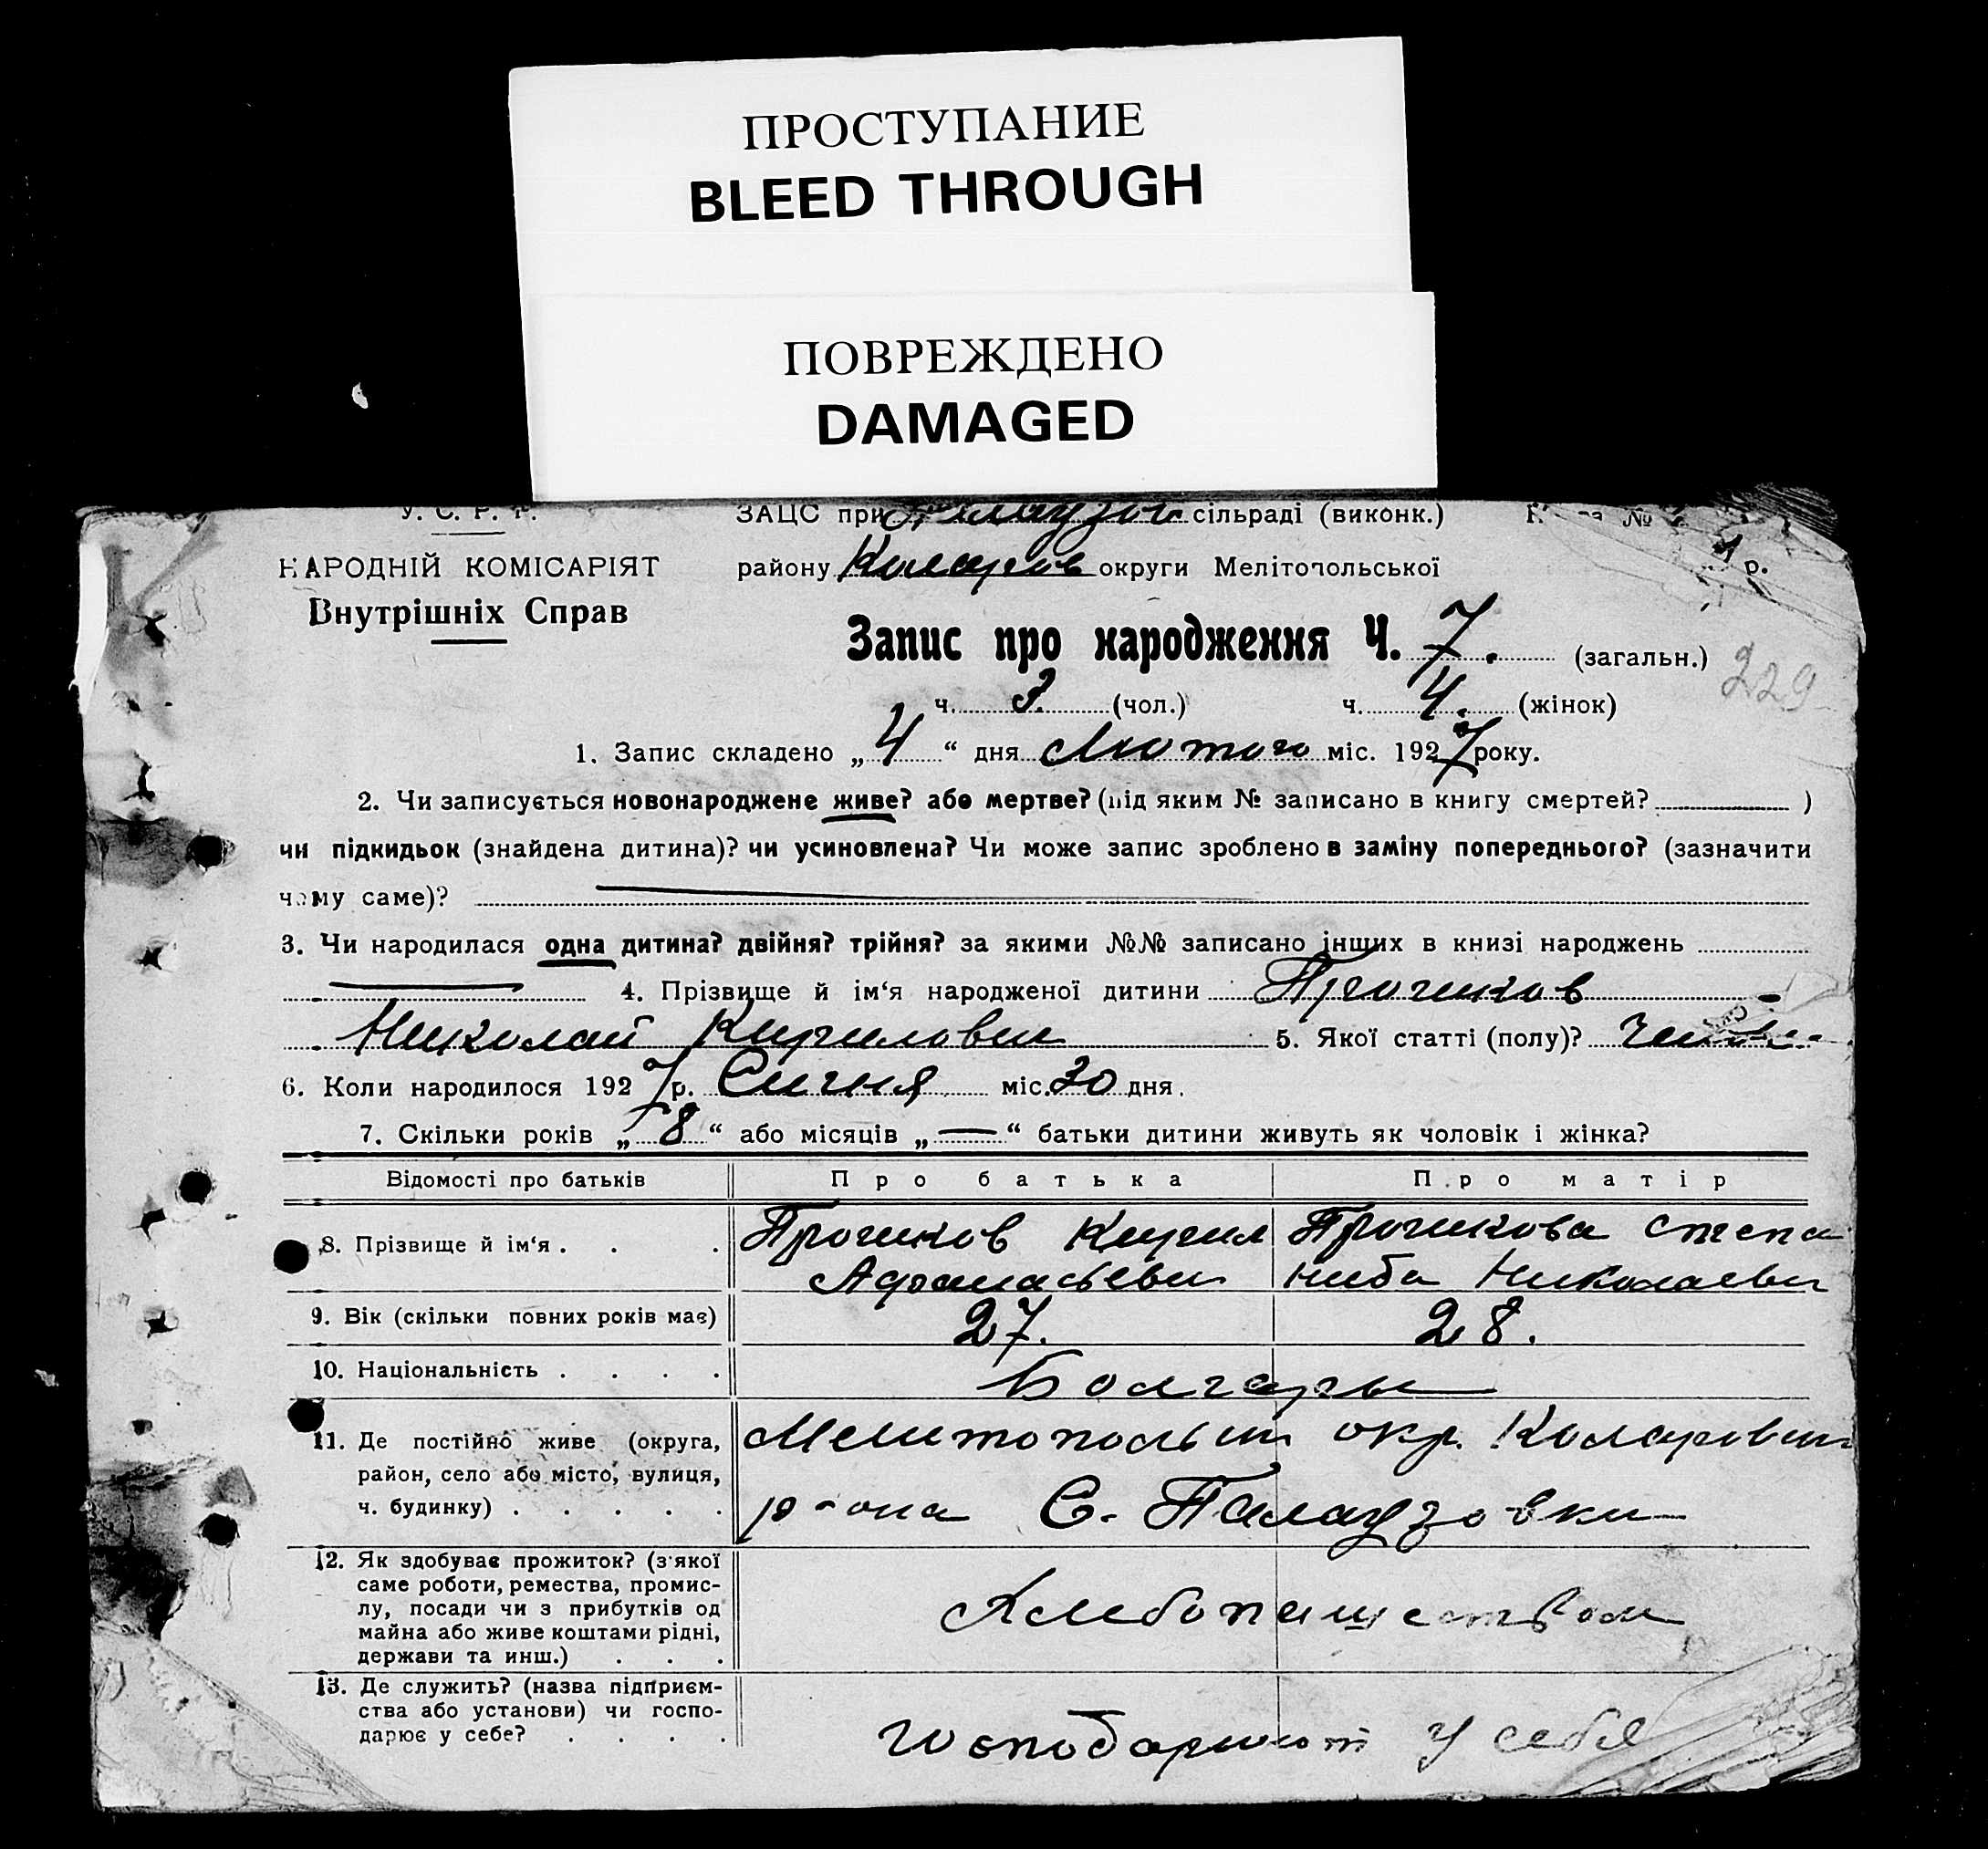 ПРОСТУПАНИЕ
BLEED THROUGH
ПОВРЕЖДЕНО
DAMAGED
У. С. Р. Р. ЗАЦС при сільраді (виконк.) №
НАРОДНІЙ КОМІСАРІЯТ району Коларов округи Мелітопольської р.
Внутрішніх Справ
Запис про народження Ч. 7. (загальн.) 229
ч. 3. (чол.) ч. 4. (жінок)
1. Запис складено „4“ дня Лютого міс. 1927 року.
2. Чи записується новонароджене живе? або мертве? (під яким № записано в книгу смертей? )
чи підкидьок (знайдена дитина)? чи усиновлена? Чи може запис зроблено в заміну попереднього? (зазначити
чому саме)?
3. Чи народилася одна дитина? двійня? трійня? за якими №№ записано інших в книзі народжень
4. Прізвище й ім‘я народженої дитини
Николай Кирилович 5. Якої статті (полу)?
6. Коли народилося 1927 р. Сичня міс. 30 дня.
7. Скільки років „8“ або місяців „—“ батьки дитини живуть як чоловік і жінка?
Відомості про батьків Про батька Про матір
8. Прізвище й ім‘я . . . Кирил Степа
нида
9. Вік (скільки повних років має) 27. 28.
10. Національність . . . . Болгары
11. Де постійно живе (округа, район, село або місто, вулиця, ч. будинку) . . . . .
окр.
р-она С. Палаузовки
12. Як здобуває прожиток? (з якої саме роботи, ремества, промислу, посади чи з прибутків од майна або живе коштами рідні, держави та инш.) . . .
Хлебопашеством
13. Де служить? (назва підприємства або установи) чи господарює у себе? . . . .
господарюют у себя